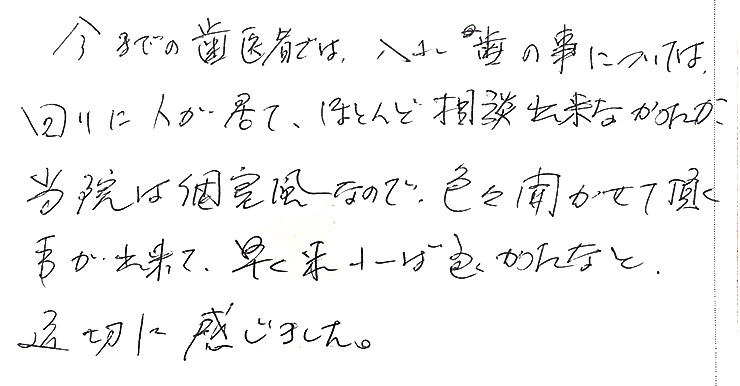 今までの歯医者では、入れ歯の事については、
回りに人が居て、ほとんど相談出来なかったが、
当院は個室風なので、色々聞かせて頂く
事が出来て、早く来れば良かったなと、
適切に感じました。